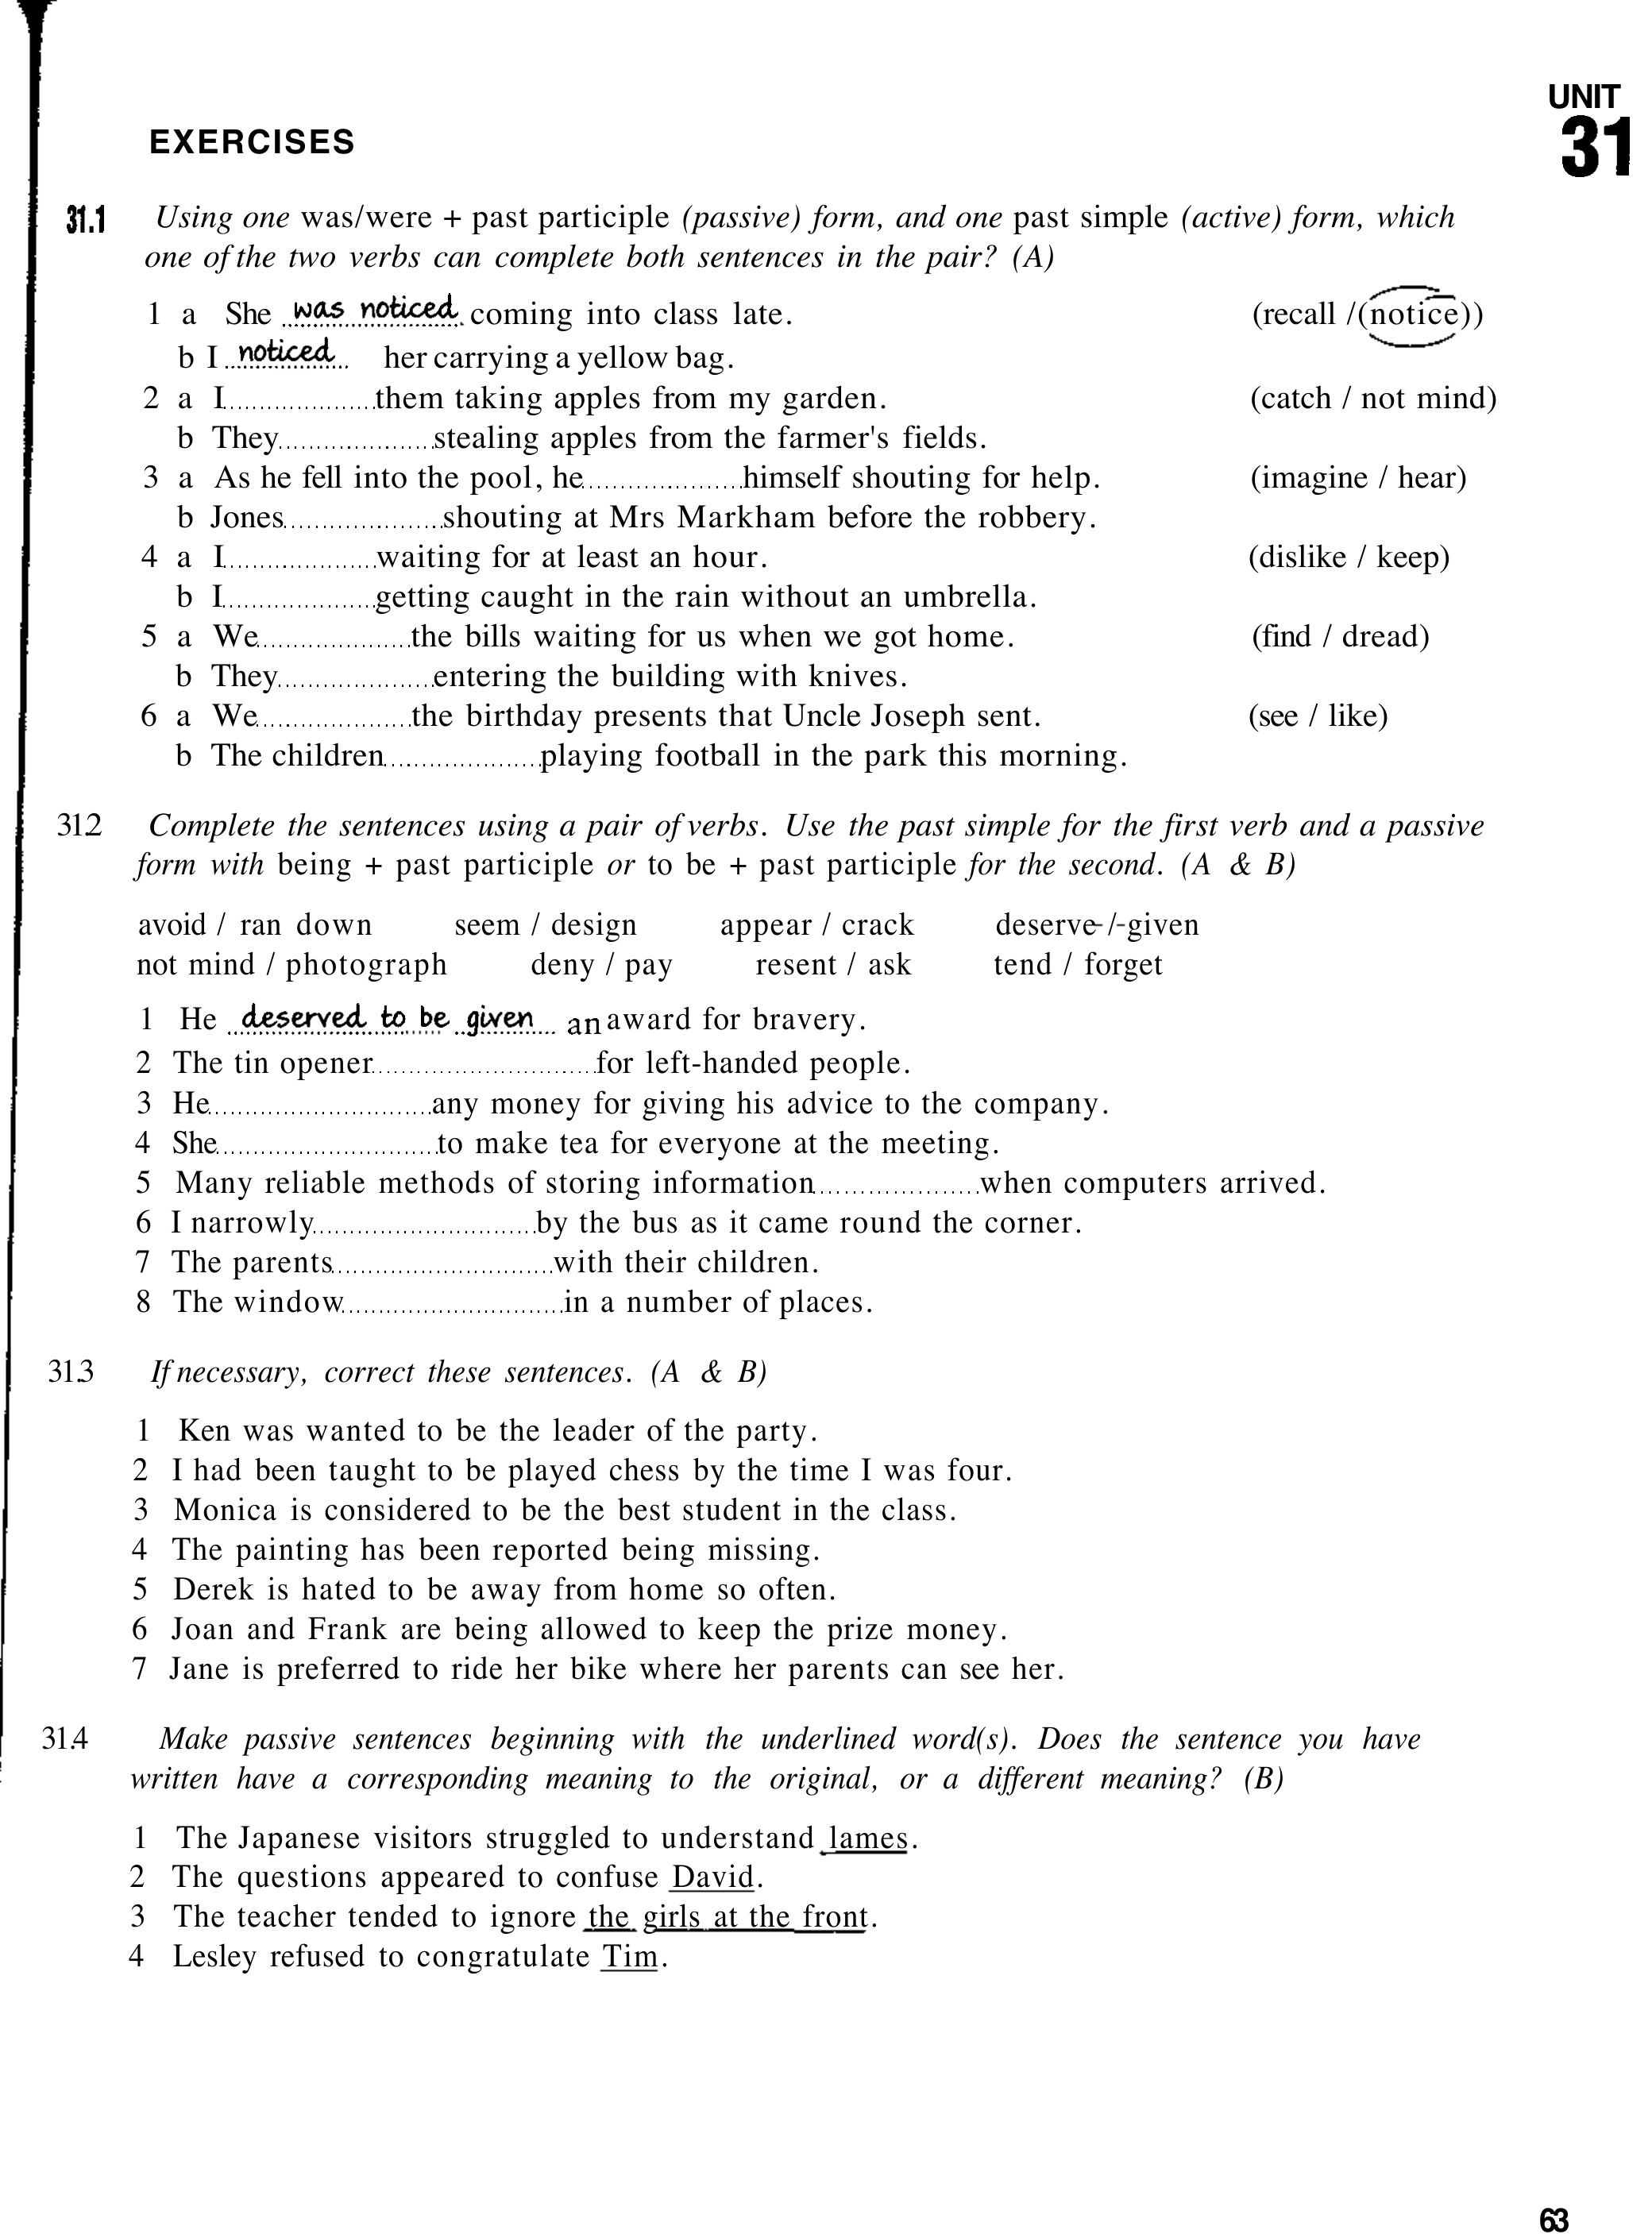 UNIT
31
EXERCISES
31.1 Using one was/were + past participle (passive) form, and one past simple (active) form, which
one of the two verbs can complete both sentences in the pair? (A)
1 a She was noticed coming into class late. (recall /(notice))
b I noticed her carrying a yellow bag.
2 a I.....................them taking apples from my garden. (catch / not mind)
b They.....................stealing apples from the farmer's fields.
3 a As he fell into the pool, he.....................himself shouting for help. (imagine / hear)
b Jones.....................shouting at Mrs Markham before the robbery.
4 a I.....................waiting for at least an hour. (dislike / keep)
b I.....................getting caught in the rain without an umbrella.
5 a We.....................the bills waiting for us when we got home. (find / dread)
b They.....................entering the building with knives.
6 a We.....................the birthday presents that Uncle Joseph sent. (see / like)
b The children.....................playing football in the park this morning.
31.2 Complete the sentences using a pair of verbs. Use the past simple for the first verb and a passive
form with being + past participle or to be + past participle for the second. (A & B)
avoid / ran down seem / design appear / crack deserve-/-given
not mind / photograph deny / pay resent / ask tend / forget
1 He deserved to be given an award for bravery.
2 The tin opener..............................for left-handed people.
3 He..............................any money for giving his advice to the company.
4 She..............................to make tea for everyone at the meeting.
5 Many reliable methods of storing information.....................when computers arrived.
6 I narrowly..............................by the bus as it came round the corner.
7 The parents..............................with their children.
8 The window..............................in a number of places.
31.3 If necessary, correct these sentences. (A & B)
1 Ken was wanted to be the leader of the party.
2 I had been taught to be played chess by the time I was four.
3 Monica is considered to be the best student in the class.
4 The painting has been reported being missing.
5 Derek is hated to be away from home so often.
6 Joan and Frank are being allowed to keep the prize money.
7 Jane is preferred to ride her bike where her parents can see her.
31.4 Make passive sentences beginning with the underlined word(s). Does the sentence you have
written have a corresponding meaning to the original, or a different meaning? (B)
1 The Japanese visitors struggled to understand lames.
2 The questions appeared to confuse David.
3 The teacher tended to ignore the girls at the front.
4 Lesley refused to congratulate Tim.
63